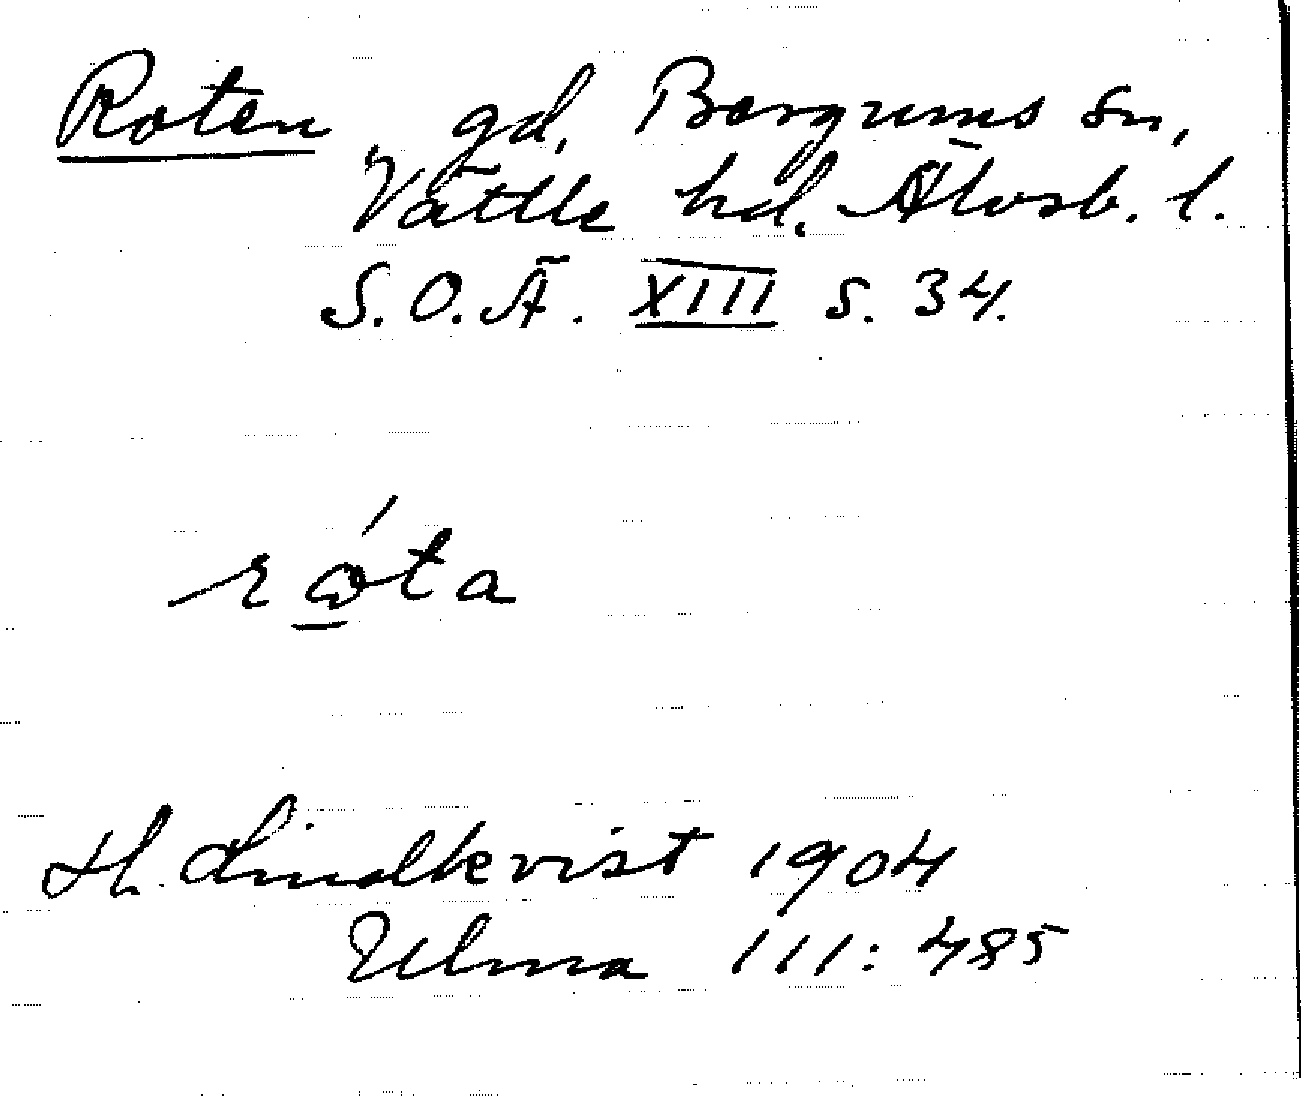 Roten gd, Bergums sn,
Vättle hd. Älvsb. l.
S.O.Ä. XIII s. 34.
ró̲ta
H. Lindkvist 1904
Ulma 111:485